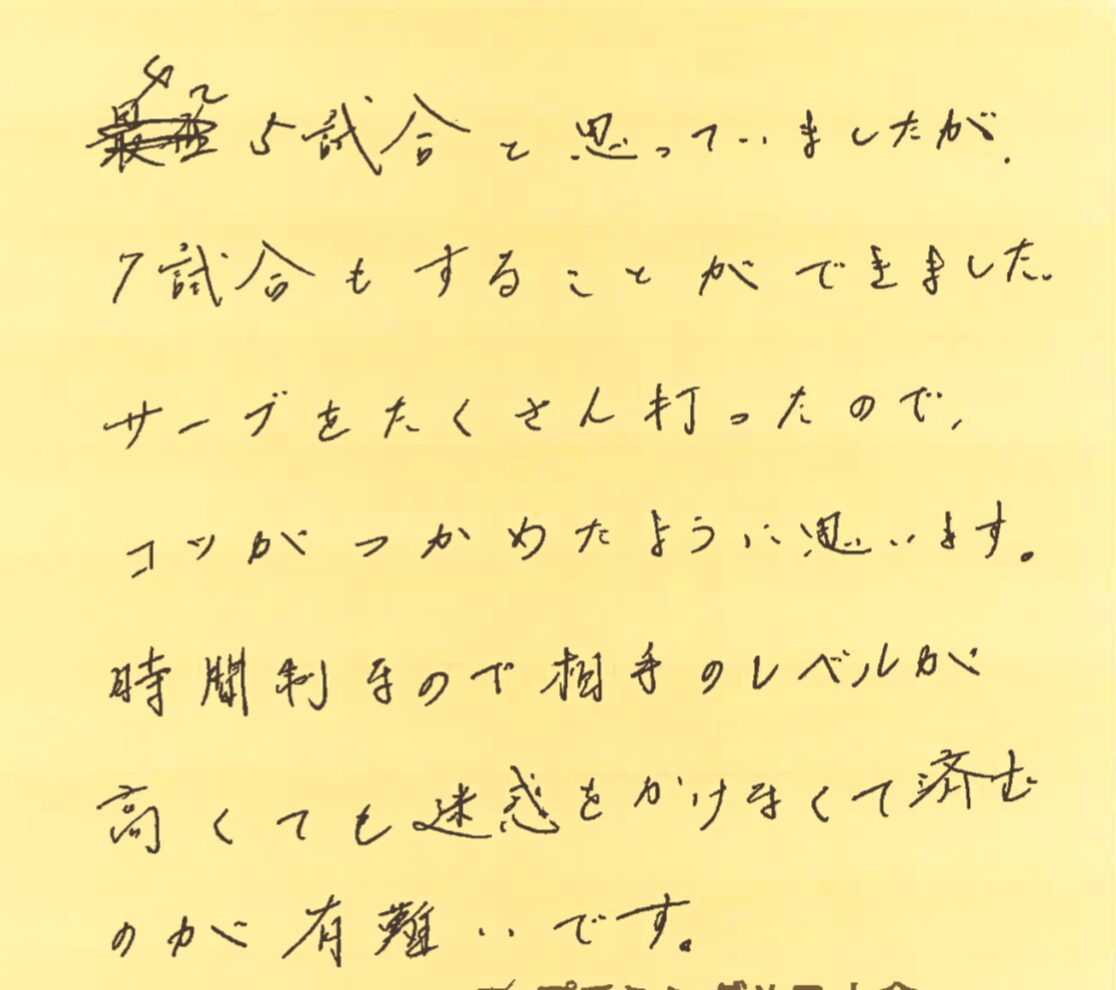 5試合と思っていましたが、
7試合もすることができました。
サーブをたくさん打ったので、
コツがつかめたように思います。
時間制なので相手のレベルが
高くても迷惑をかけなくて済む
のが有難いです。